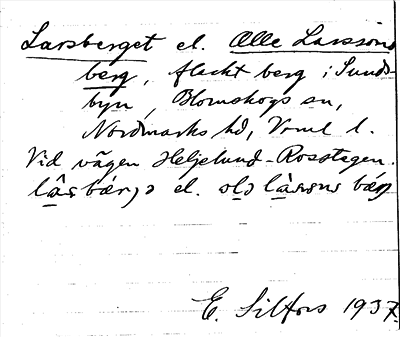 Larsberget el. Ælle Larssons
berg, flackt berg i Sunds-
byn, Blomskogs sn,
Nordmarks hd, Vrml l.
Vid vägen Heljelund-Rosstegen.
lâsbærjə el. olə làsons bærj
E. Silfors 1937.